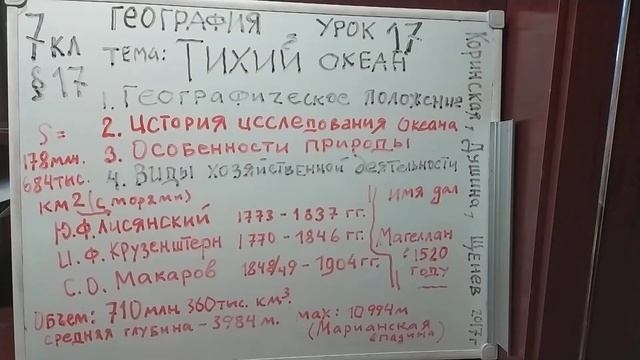 7 кл ГЕОГРАФИЯ - УРОК 17
§ 17 ТЕМА: ТИХИЙ ОКЕАН
1. ГЕОГРАФИЧЕСКОЕ ПОЛОЖЕНИЕ
2. ИСТОРИЯ ИССЛЕДОВАНИЯ ОКЕАНА
3. ОСОБЕННОСТИ ПРИРОДЫ
4. ВИДЫ ХОЗЯЙСТВЕННОЙ ДЕЯТЕЛЬНОСТИ
S =
178 млн.
684 тыс.
км2 (с морями)
Ю.Ф. Лисянский 1773 - 1837 гг.
И.Ф. Крузенштерн 1770 - 1846 гг.
С.О. Макаров 1848/49 - 1904 гг.
имя дал
Магеллан
в 1520
году
Объем: 710 млн 360 тыс. км3.
средняя глубина - 3984 м.
max: 10 994 м
(Марианская
впадина)
Коринская, Душина, Щенев 2017 г